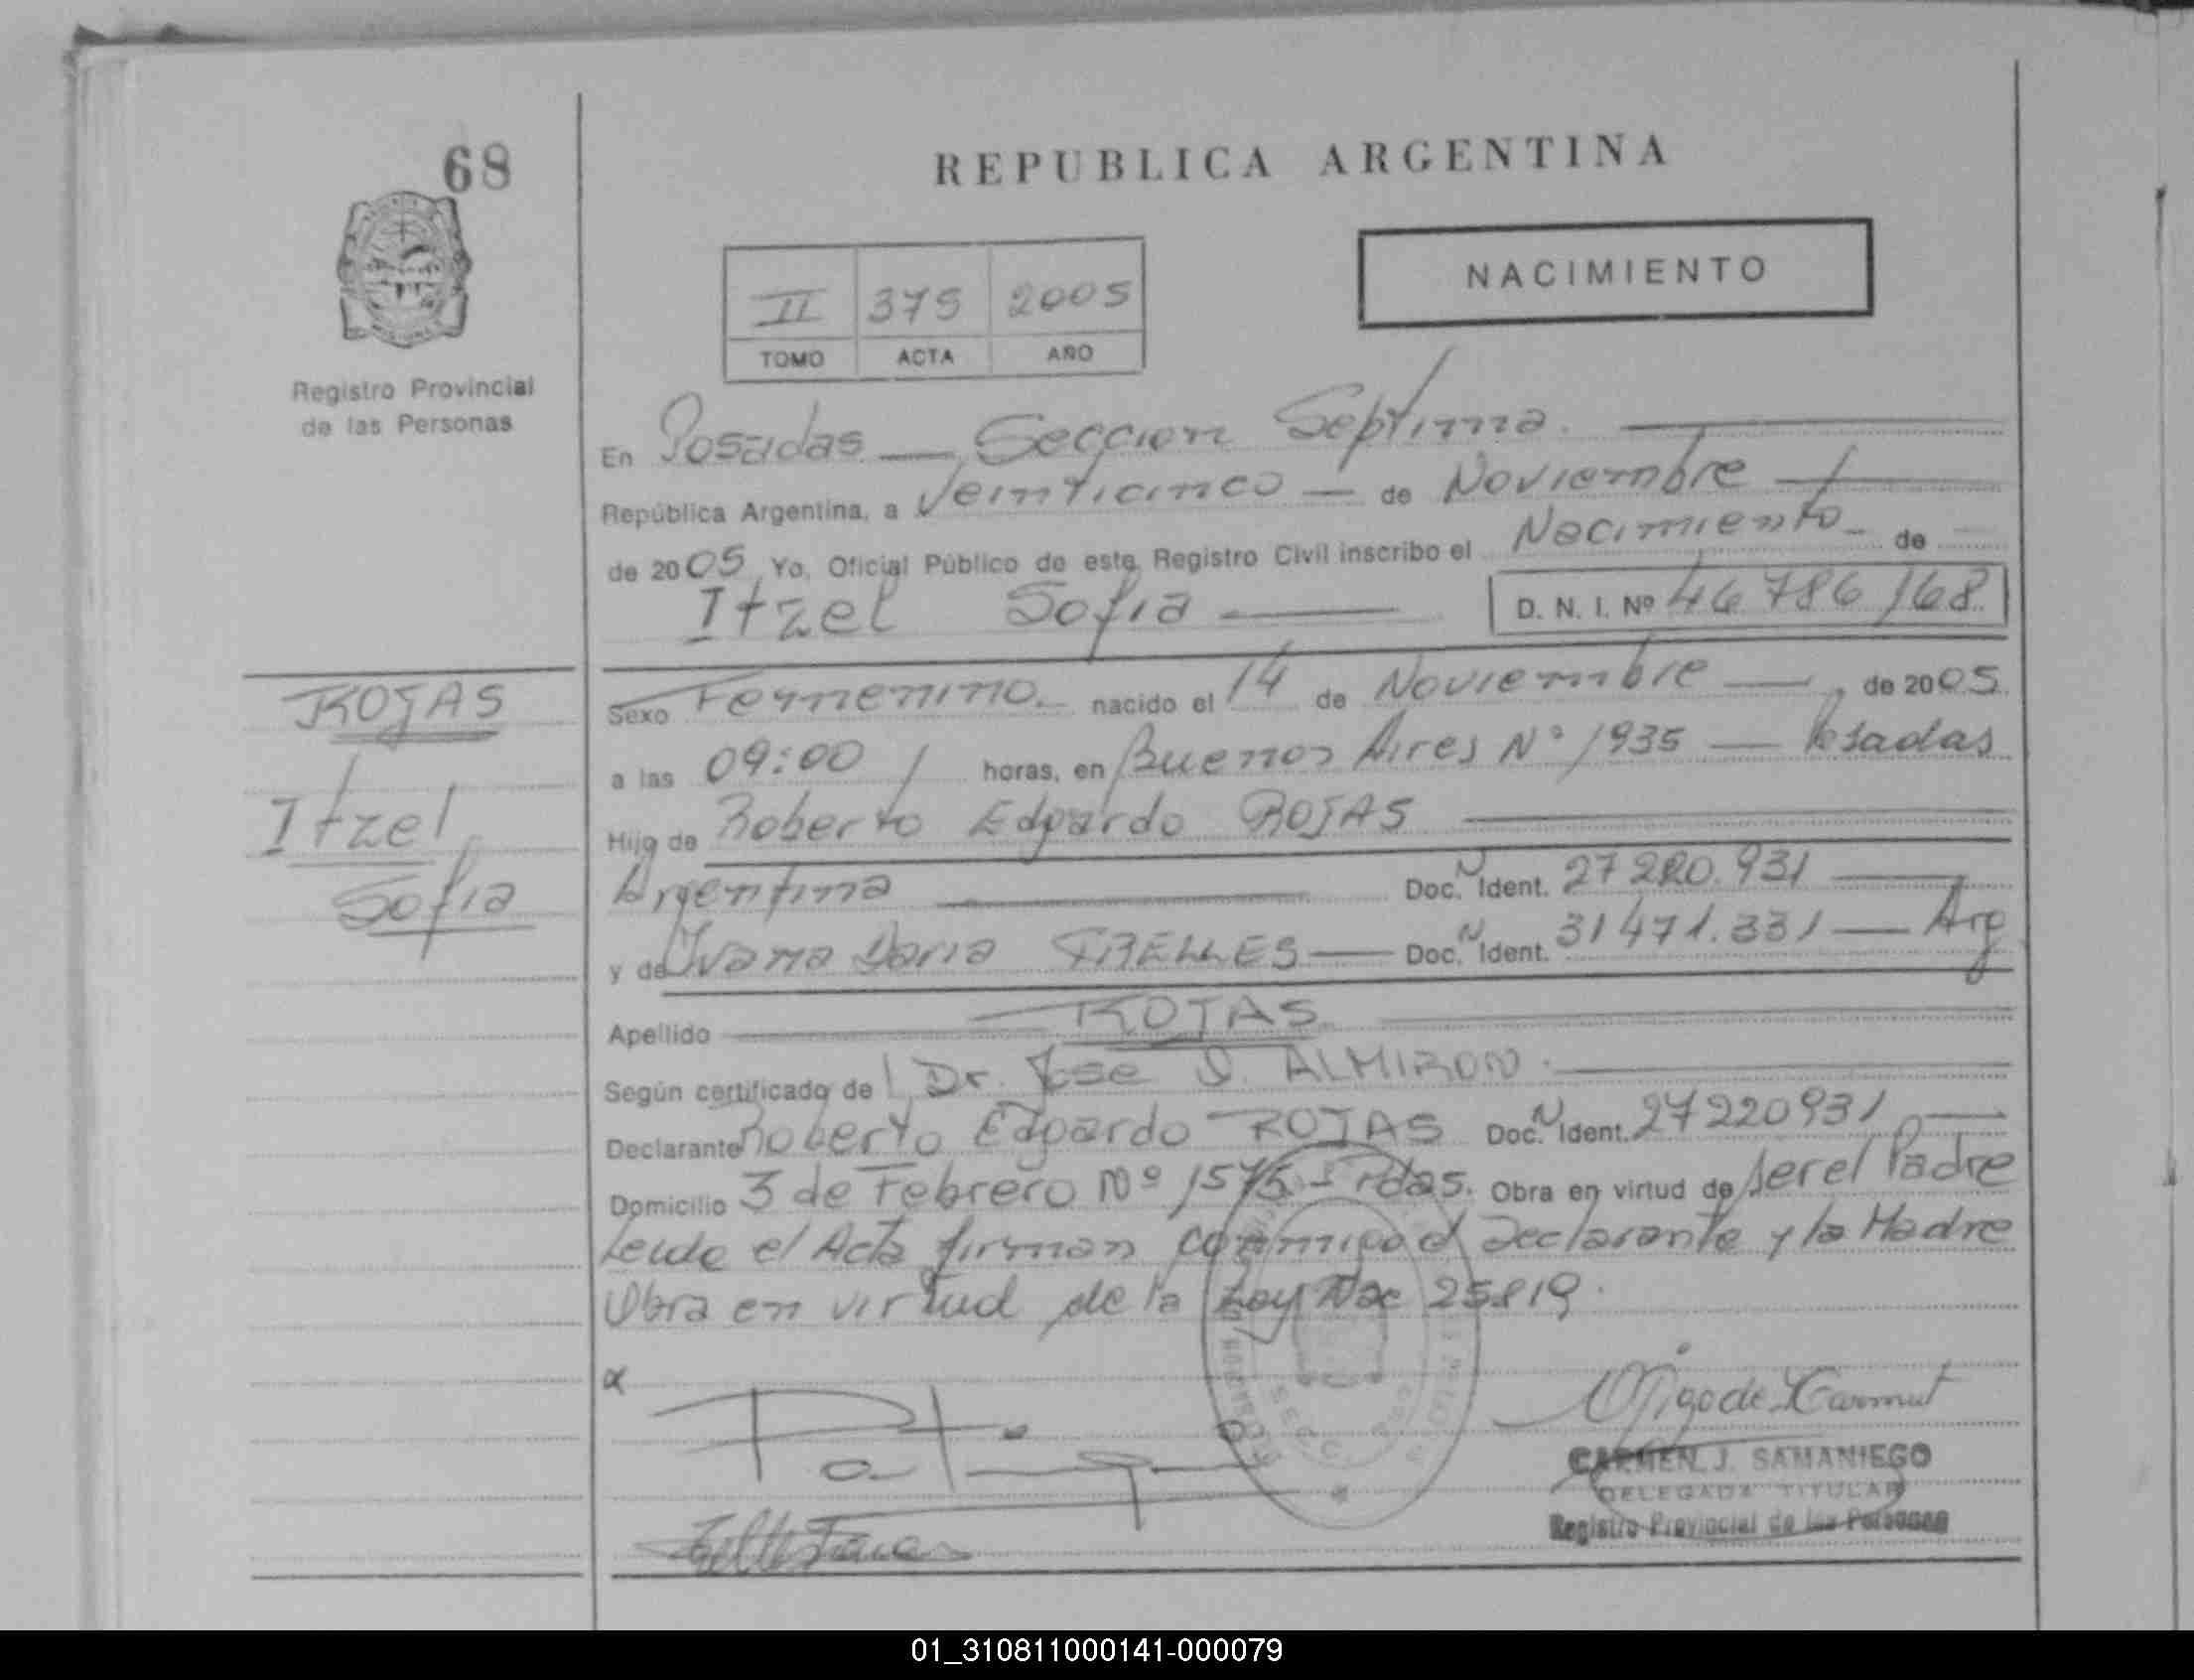 68
REPUBLICA ARGENTINA
NACIMIENTO
II 375 2005
TOMO ACTA AÑO
Registro Provincial
de las Personas
En Posadas — Seccion Septima.
República Argentina, a Veinticinco — de Noviembre
de 2005, Yo, Oficial Público de este Registro Civil inscribo el Nacimiento - de
Itzel Sofia — D. N. I. Nº 46786168
ROJAS
Itzel
Sofia
Sexo Femenino. nacido el 14 de Noviembre —, de 2005
a las 09:00 / horas, en Buenos Aires Nº 1935 — Posadas
Hijo de Roberto Edgardo ROJAS
Argentina — Doc. N Ident. 27220.931 —
y de Ivana Daria TRELLES — Doc. N Ident. 31471.331 — Arg
Apellido — ROJAS
Según certificado de Dr. Jose ALMIRON.
Declarante Roberto Edgardo ROJAS Doc. N Ident. 27220931 —
Domicilio 3 de Febrero Nº 1575 - Pdas. Obra en virtud de ser el Padre
Leida el Acta firman conmigo el Declarante y la Madre
Obra en virtud de la Ley Nac 25819.
CARMEN J. SAMANIEGO
DELEGADA TITULAR
Registro Provincial de las Personas
01_310811000141-000079